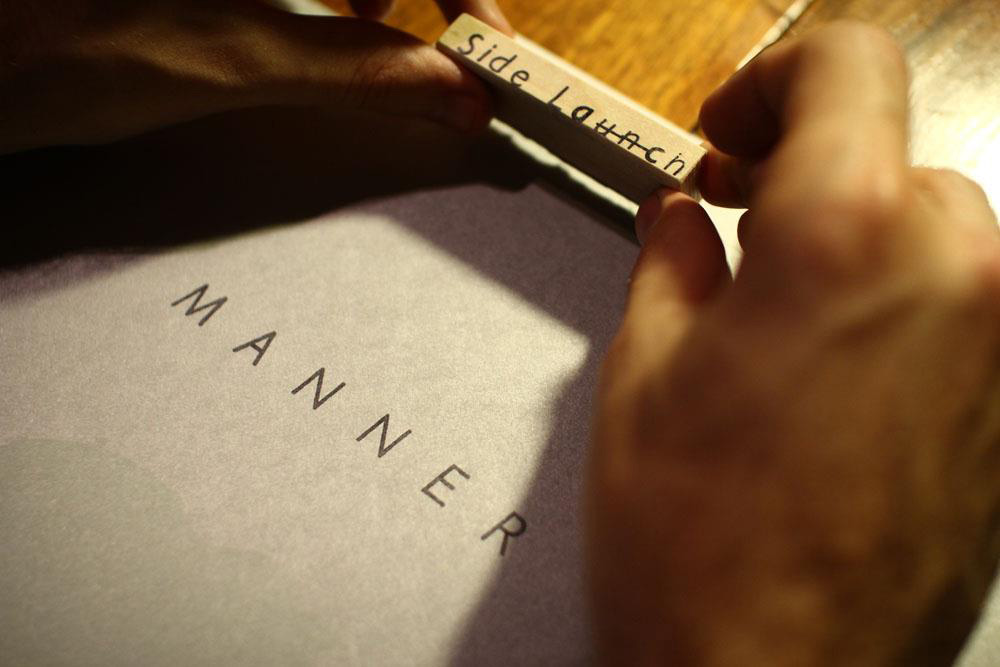 Side Launch
MANNER